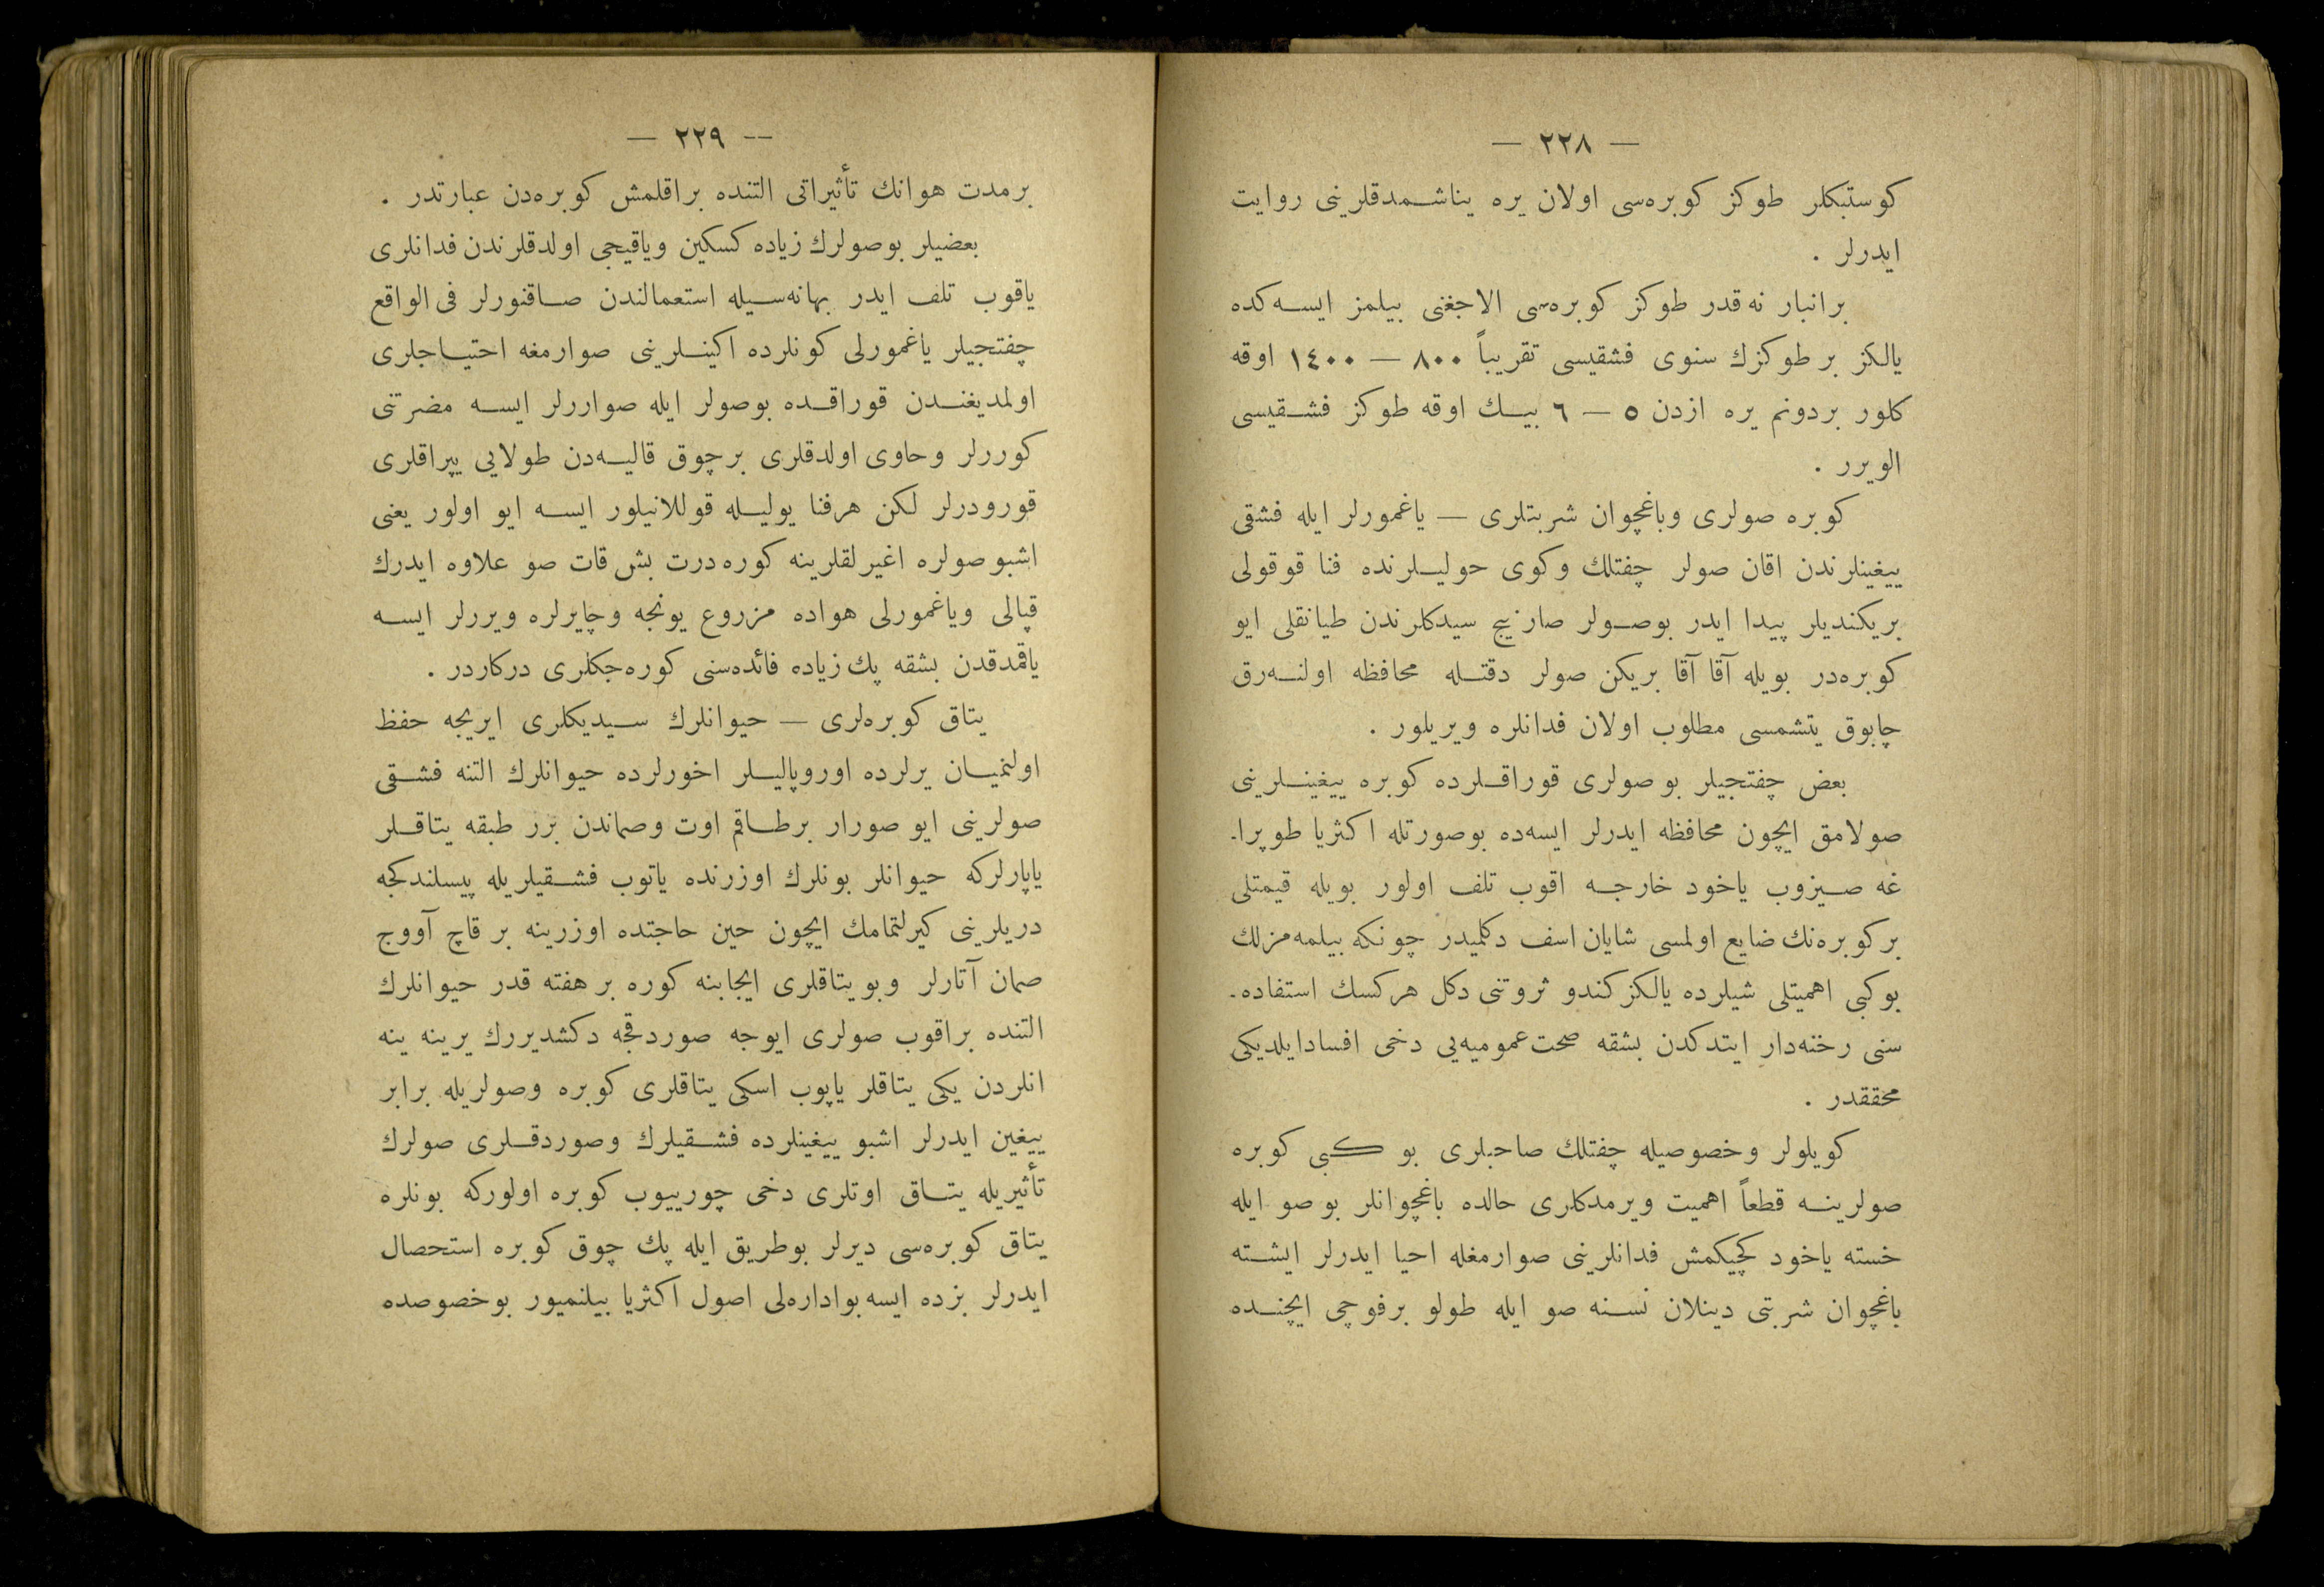 — ٢٢٨ —
كوستبكلر طوكز كوبره‌سی اولان یره یناشمدقلرینی روایت
ایدرلر .
برانبار نه قدر طوكز كوبره‌سی الاجغنی بیلمز ایسه‌كده
یالكز بر طوكزك سنوی فشقیسی تقریباً ٨٠٠ — ١٤٠٠ اوقه
كلور بردونم یره ازدن ٥ — ٦ بیك اوقه طوكز فشقیسی
الویرر .
كوبره صولری وباغچوان شربتلری — یاغمورلر ایله فشقی
ییغینلرندن اقان صولر چفتلك وكوی حولیلرنده فنا قوقولی
بریكندیلر پیدا ایدر بوصولر صارنیج سیدكلرندن طیانقلی ایو
كوبره‌در بویله آقا آقا بریكن صولر دقتله محافظه اولنه‌رق
چابوق یتشمسی مطلوب اولان فدانلره ویریلور .
بعض چفتجیلر بو صولری قوراقلرده كوبره ییغینلرینی
صولامق ایچون محافظه ایدرلر ایسه‌ده بوصورتله اكثریا طوپرا-
غه صیزوب یاخود خارجه اقوب تلف اولور بویله قیمتلی
بر كوبره‌نك ضایع اولمسی شایان اسف دكلمیدر چونكه بیلمه‌مزلك
بوكبی اهمیتلی شیلرده یالكز كندو ثروتنی دكل هركسك استفاده-
سنی رخنه‌دار ایتدكدن بشقه صحت عمومیه‌یی دخی افسادایلدیكی
محققدر .
كویلولر وخصوصیله چفتلك صاحبلری بو كبی كوبره
صولرینه قطعاً اهمیت ویرمدكلری حالده باغچوانلر بو صو ایله
خسته یاخود كچیكمش فدانلرینی صوارمغله احیا ایدرلر ایشته
باغچوان شربتی دینلان نسنه صو ایله طولو برفوچی ایچنده
-- ٢٢٩ —
برمدت هوانك تأثیراتی التنده براقلمش كوبره‌دن عبارتدر .
بعضیلر بوصولرك زیاده كسكین ویاقیجی اولدقلرندن فدانلری
یاقوب تلف ایدر بهانه‌سیله استعمالندن صاقنورلر فی الواقع
چفتجیلر یاغمورلی كونلرده اكینلرینی صوارمغه احتیاجلری
اولمدیغندن قوراقده بوصولر ایله صواررلر ایسه مضرتنی
كوررلر وحاوی اولدقلری برچوق قالیه‌دن طولایی یپراقلری
قورودرلر لكن هرفنا یولیله قوللانیلور ایسه ایو اولور یعنی
اشبو صولره اغیرلقلرینه كوره درت بش قات صو علاوه ایدرك
قپالی ویاغمورلی هواده مزروع یونجه وچایرلره ویررلر ایسه
یاقمدقدن بشقه پك زیاده فائده‌سنی كوره‌جكلری دركاردر .
یتاق كوبره‌لری — حیوانلرك سیدیكلری ایریجه حفظ
اولنمیان یرلرده اوروپالیلر اخورلرده حیوانلرك التنه فشقی
صولرینی ایو صورار برطاقم اوت وصماندن برر طبقه یتاقلر
یاپارلركه حیوانلر بونلرك اوزرنده یاتوب فشقیلریله پیسلندكجه
دریلرینی كیرلتمامك ایچون حین حاجتده اوزرینه بر قاچ آووج
صمان آتارلر وبو یتاقلری ایجابنه كوره بر هفته قدر حیوانلرك
التنده براقوب صولری ایوجه صوردقجه دكشدیررك یرینه ینه
انلردن یكی یتاقلر یاپوب اسكی یتاقلری كوبره وصولریله برابر
ییغین ایدرلر اشبو ییغینلرده فشقیلرك وصوردقلری صولرك
تأثیریله یتاق اوتلری دخی چورییوب كوبره اولوركه بونلره
یتاق كوبره‌سی دیرلر بوطریق ایله پك چوق كوبره استحصال
ایدرلر بزده ایسه بواداره‌لی اصول اكثریا بیلنمیور بوخصوصده